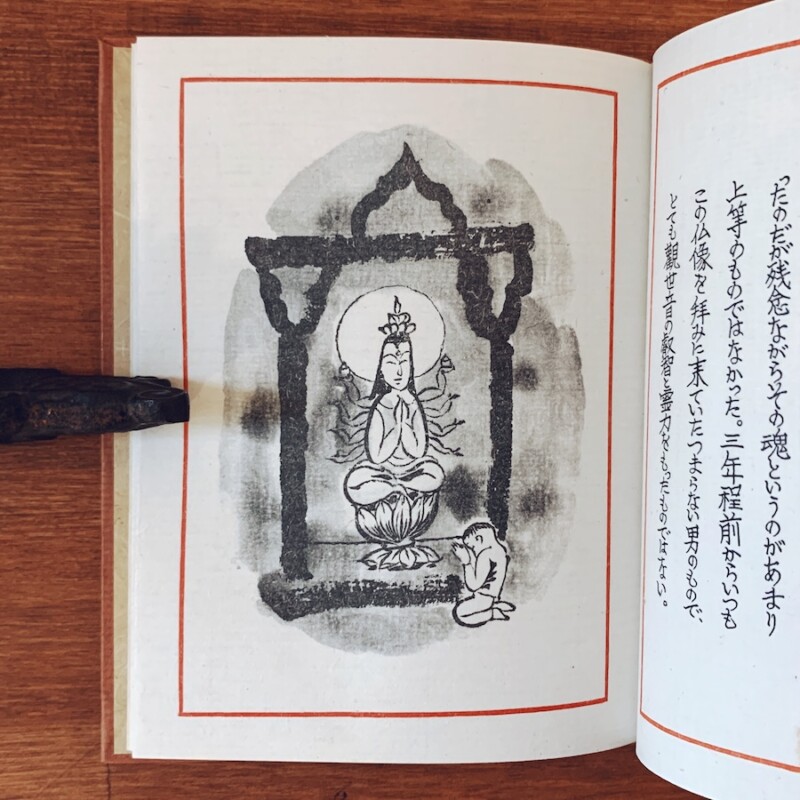 ったのだが残念ながらその魂というのがあまり
上等のものではなかった。三年程前からいつも
この仏像を拝みに末ていたつまらない男のもので、
とても觀世音の叡智と霊力をもったものではない。